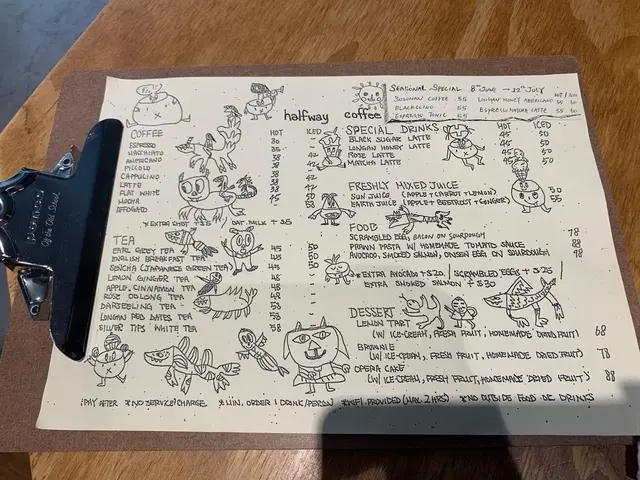 halfway coffee
SEASONAL SPECIAL 8th JUNE → 12th JULY
COFFEE 55 LONGAN HONEY AMERICANO
55 ESPRESSO MATCHA LATTE
ESPRESSO TONIC 55
COFFEE HOT ICED
ESPRESSO 30
MACCHIATO 35
AMERICANO 38 42
PICCOLO 38
CAPPUCINO 38 42
LATTE 38 42
FLAT WHITE 38
MOCHA
AFFOGATO
*EXTRA SHOT +$5 OAT MILK +$5
TEA
EARL GREY TEA 45 50
ENGLISH BREAKFAST TEA 45 50
SENCHA (JAPANESE GREEN TEA) 45 50
LEMON GINGER TEA
APPLE CINNAMON TEA
ROSE OOLONG TEA
DARJEELING TEA
LONGAN RED DATES TEA
SILVER TIPS WHITE TEA 58
SPECIAL DRINKS HOT ICED
BLACK SUGAR LATTE 45 50
LONGAN HONEY LATTE 45 50
ROSE LATTE 45 50
MATCHA LATTE 45 50
FRESHLY MIXED JUICE
SUN JUICE (APPLE + CARROT + LEMON) 50
EARTH JUICE (APPLE + BEETROOT + GINGER) 50
FOOD
SCRAMBLED EGG, BACON ON SOURDOUGH 78
PRAWN PASTA W/ HOMEMADE TOMATO SAUCE 88
AVOCADO, SMOKED SALMON, ONSEN EGG ON SOURDOUGH 98
*EXTRA AVOCADO +$20 / SCRAMBLED EGG +$25 /
EXTRA SMOKED SALMON +$30
DESSERT
LEMON TART
(W/ ICE-CREAM, FRESH FRUIT, HOMEMADE DRIED FRUIT) 68
BROWNIE
(W/ ICE-CREAM, FRESH FRUIT, HOMEMADE DRIED FRUIT) 78
OPERA CAKE
(W/ ICE-CREAM, FRESH FRUIT, HOMEMADE DRIED FRUIT) 88
*PAY AFTER *NO SERVICE CHARGE *MIN. ORDER 1 DRINK/PERSON *WIFI PROVIDED (MAX. 2 HRS) *NO OUTSIDE FOOD OR DRINKS